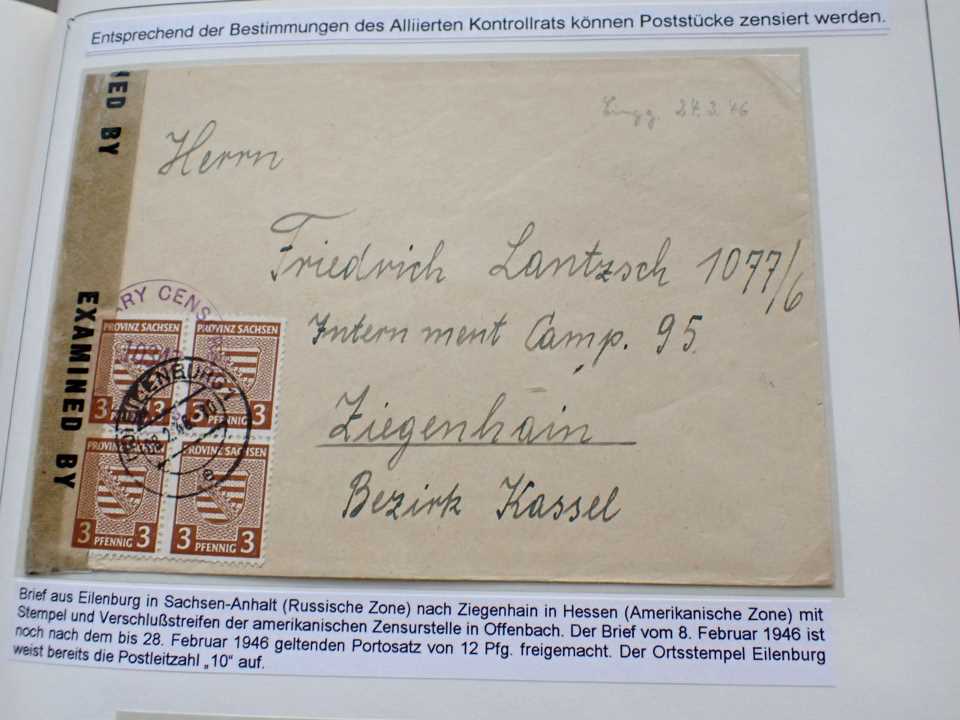 Entsprechend der Bestimmungen des Alliierten Kontrollrats können Poststücke zensiert werden.
NED BY
24.2.46
Herrn
Friedrich Lantzsch 1077/6
Internment Camp. 95
Ziegenhain
Bezirk Kassel
EXAMINED BY
ARY CENS
PROVINZ SACHSEN
PROVINZ SACHSEN
3 3
3 3
EILENBURG 1
PROVINZ SACHSEN
PROVINZ SACHSEN
3 PFENNIG 3
3 PFENNIG 3
Brief aus Eilenburg in Sachsen-Anhalt (Russische Zone) nach Ziegenhain in Hessen (Amerikanische Zone) mit
Stempel und Verschlußstreifen der amerikanischen Zensurstelle in Offenbach. Der Brief vom 8. Februar 1946 ist
noch nach dem bis 28. Februar 1946 geltenden Portosatz von 12 Pfg. freigemacht. Der Ortsstempel Eilenburg
weist bereits die Postleitzahl „10" auf.